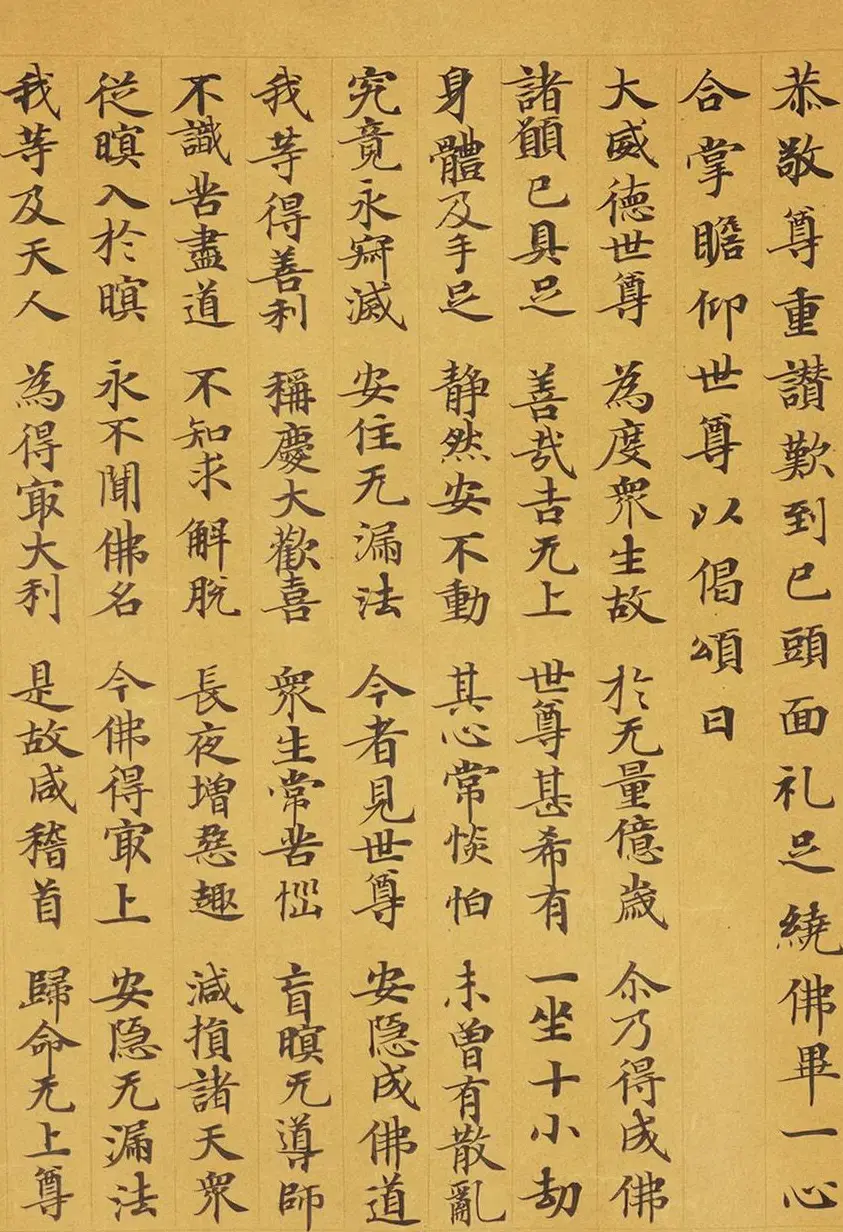 恭敬尊重讚歎到已頭面礼足繞佛畢一心
合掌瞻仰世尊以偈頌曰
大威德世尊 為度眾生故 於无量億歲 尒乃得成佛
諸願已具足 善哉吉无上 世尊甚希有 一坐十小劫
身體及手足 静然安不動 其心常惔怕 未曾有散亂
究竟永寂滅 安住无漏法 今者見世尊 安隱成佛道
我等得善利 稱慶大歡喜 眾生常苦惱 盲瞑无導師
不識苦盡道 不知求解脫 長夜增惡趣 減損諸天眾
從瞑入於瞑 永不聞佛名 今佛得冣上 安隱无漏法
我等及天人 為得冣大利 是故咸稽首 歸命无上尊